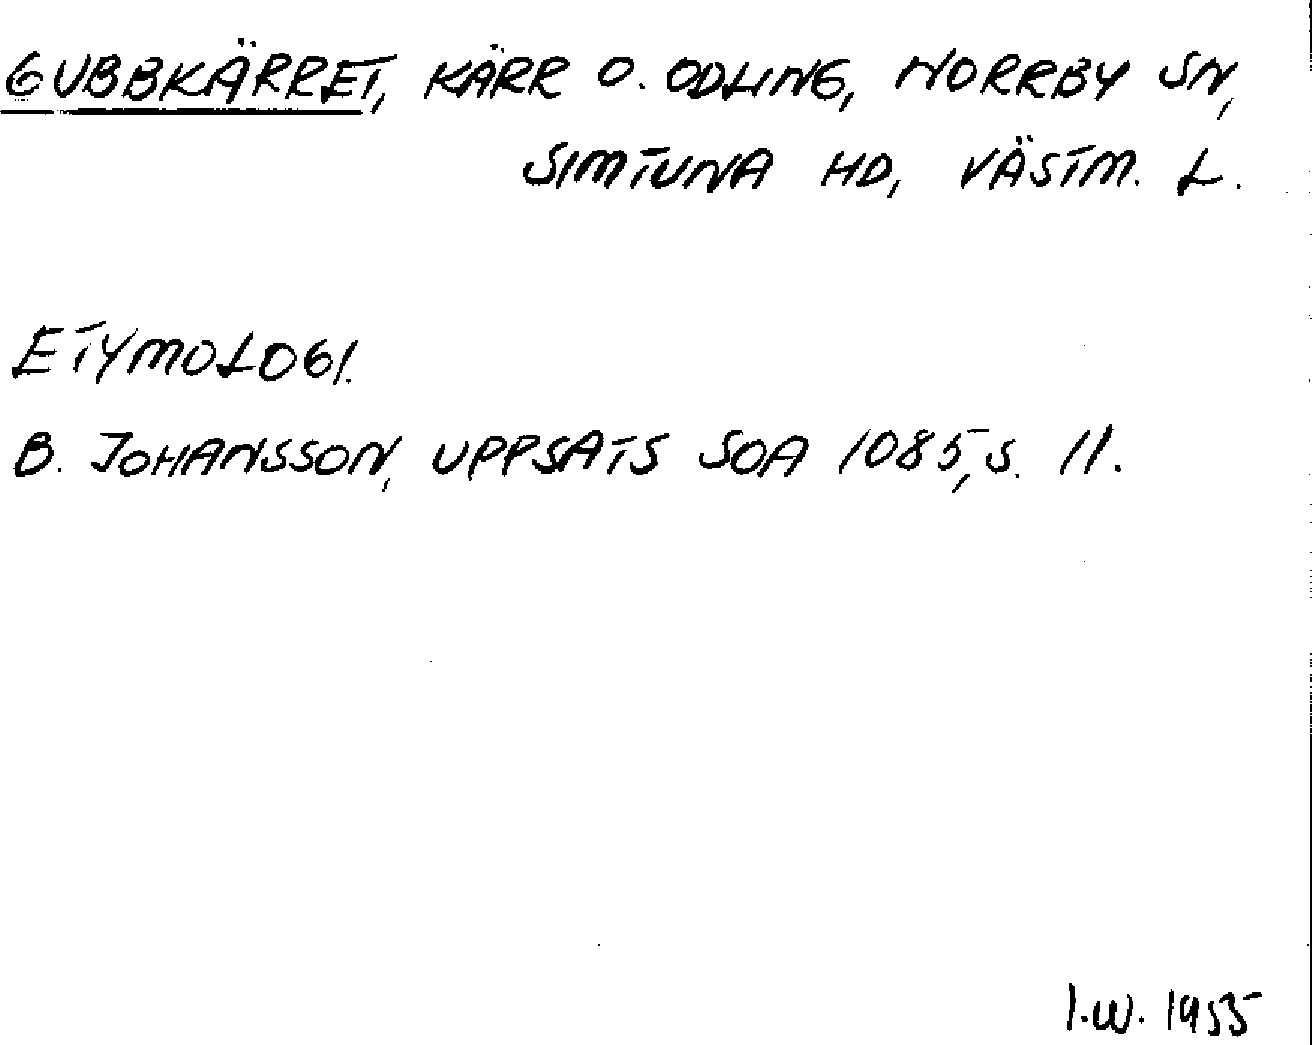 GUBBKÄRRET, KÄRR O. ODLING, NORRBY SN,
SIMTUNA HD, VÄSTM. L.
ETYMOLOGI.
B. JOHANSSON, UPPSATS SOA 1085, S. 11.
I.W. 1955